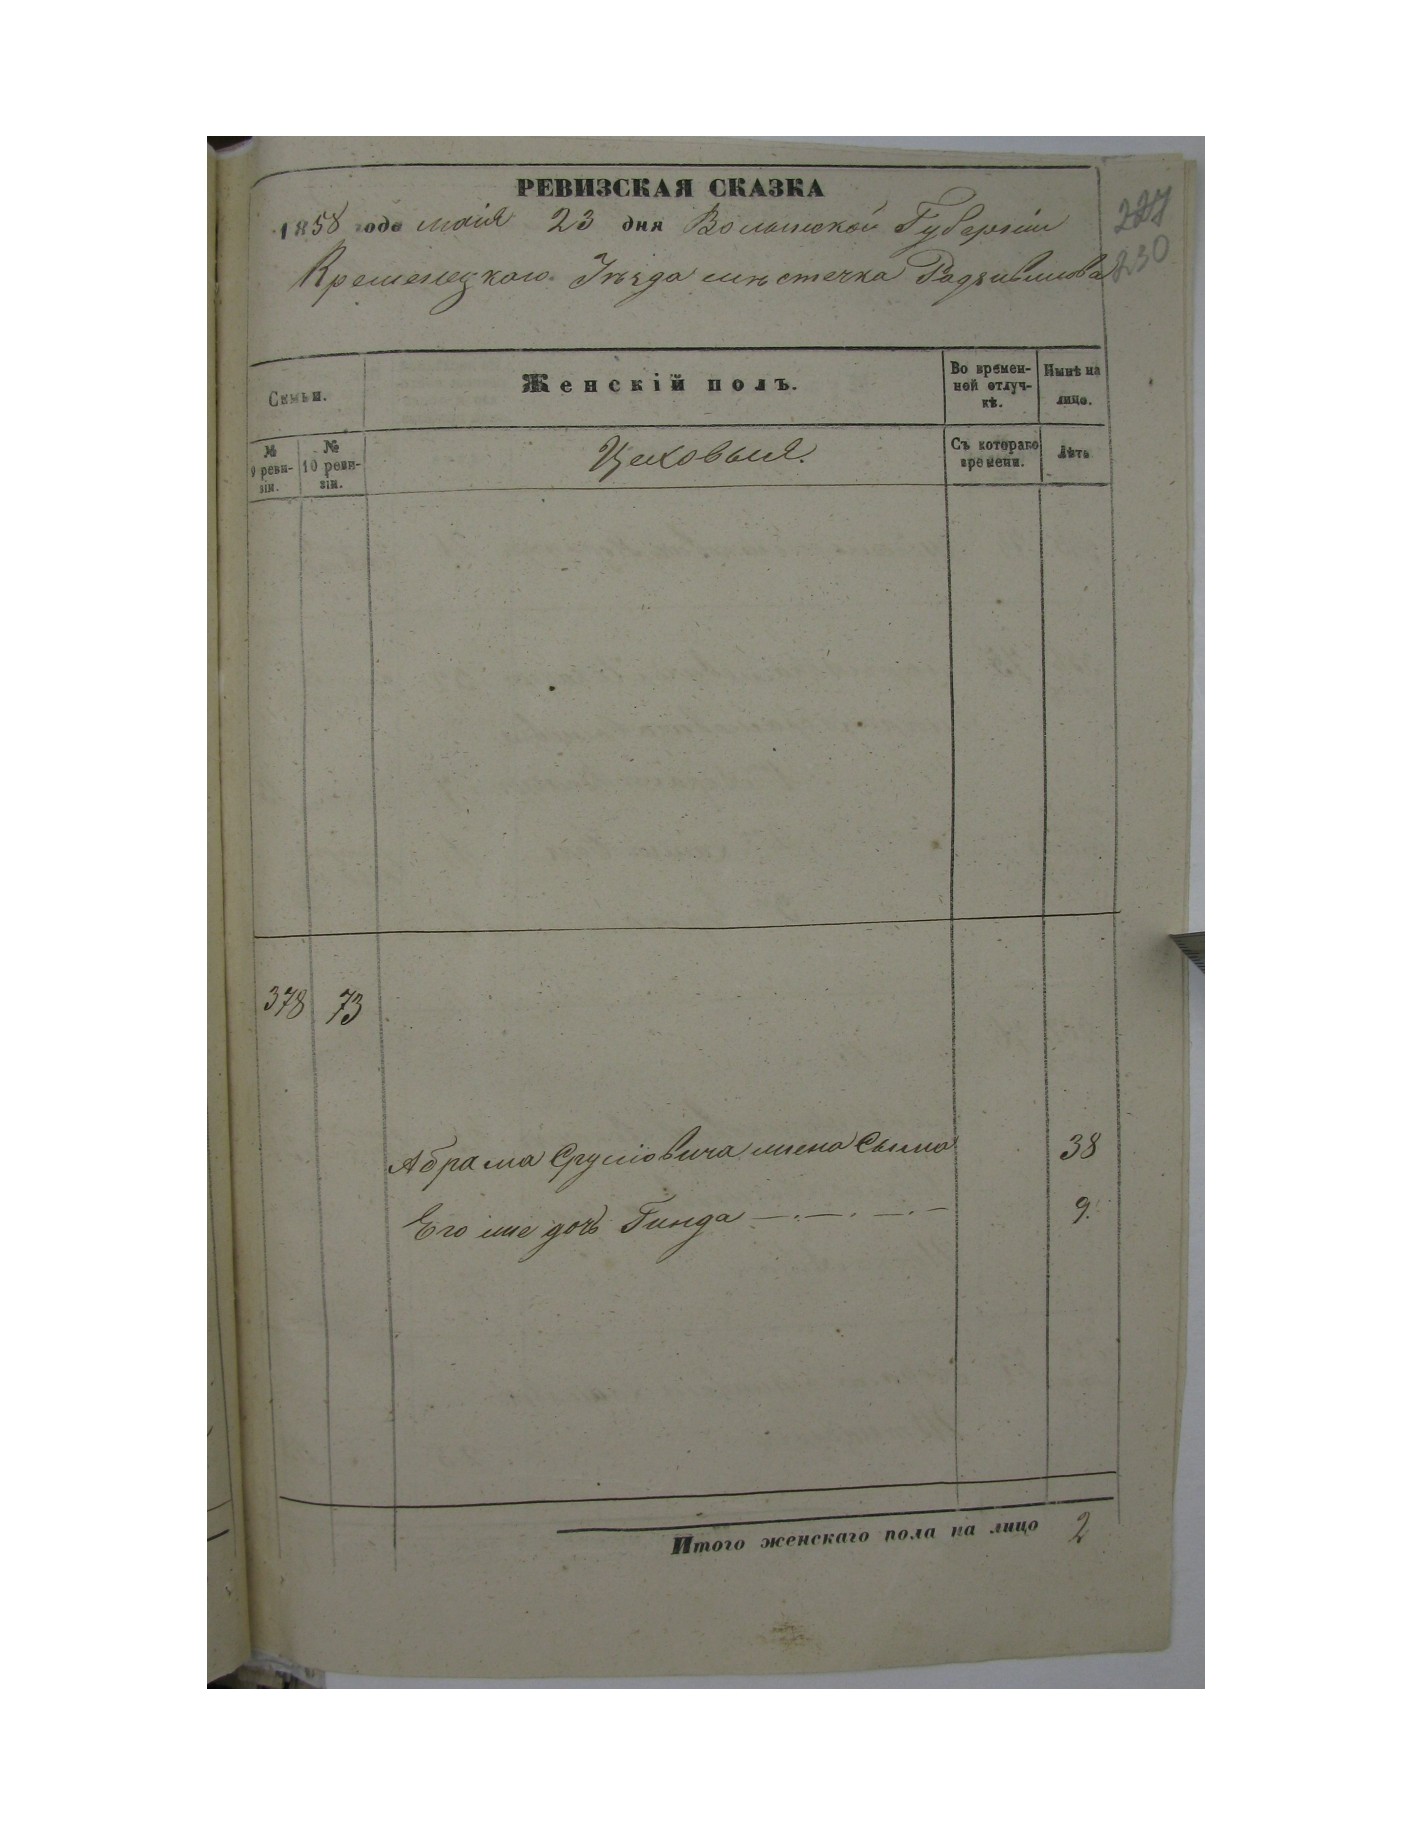 РЕВИЗСКАЯ СКАЗКА
1858 года маія 23 дня Волынской Губерніи
Кременецкаго Уѣзда мѣстечка Радзивилова
227
230
Семьи.
Женскій полъ.
Во времен-
ной отлуч-
кѣ.
Нынѣ на
лицо.
№
9 реви-
зіи.
№
10 реви-
зіи.
Цеховыя.
Съ котораго
времени.
Лѣта
378 73
Абрама Сруліовича жена Сыма 38
Его же дочь Гинда 9.
Итого женскаго пола на лицо 2